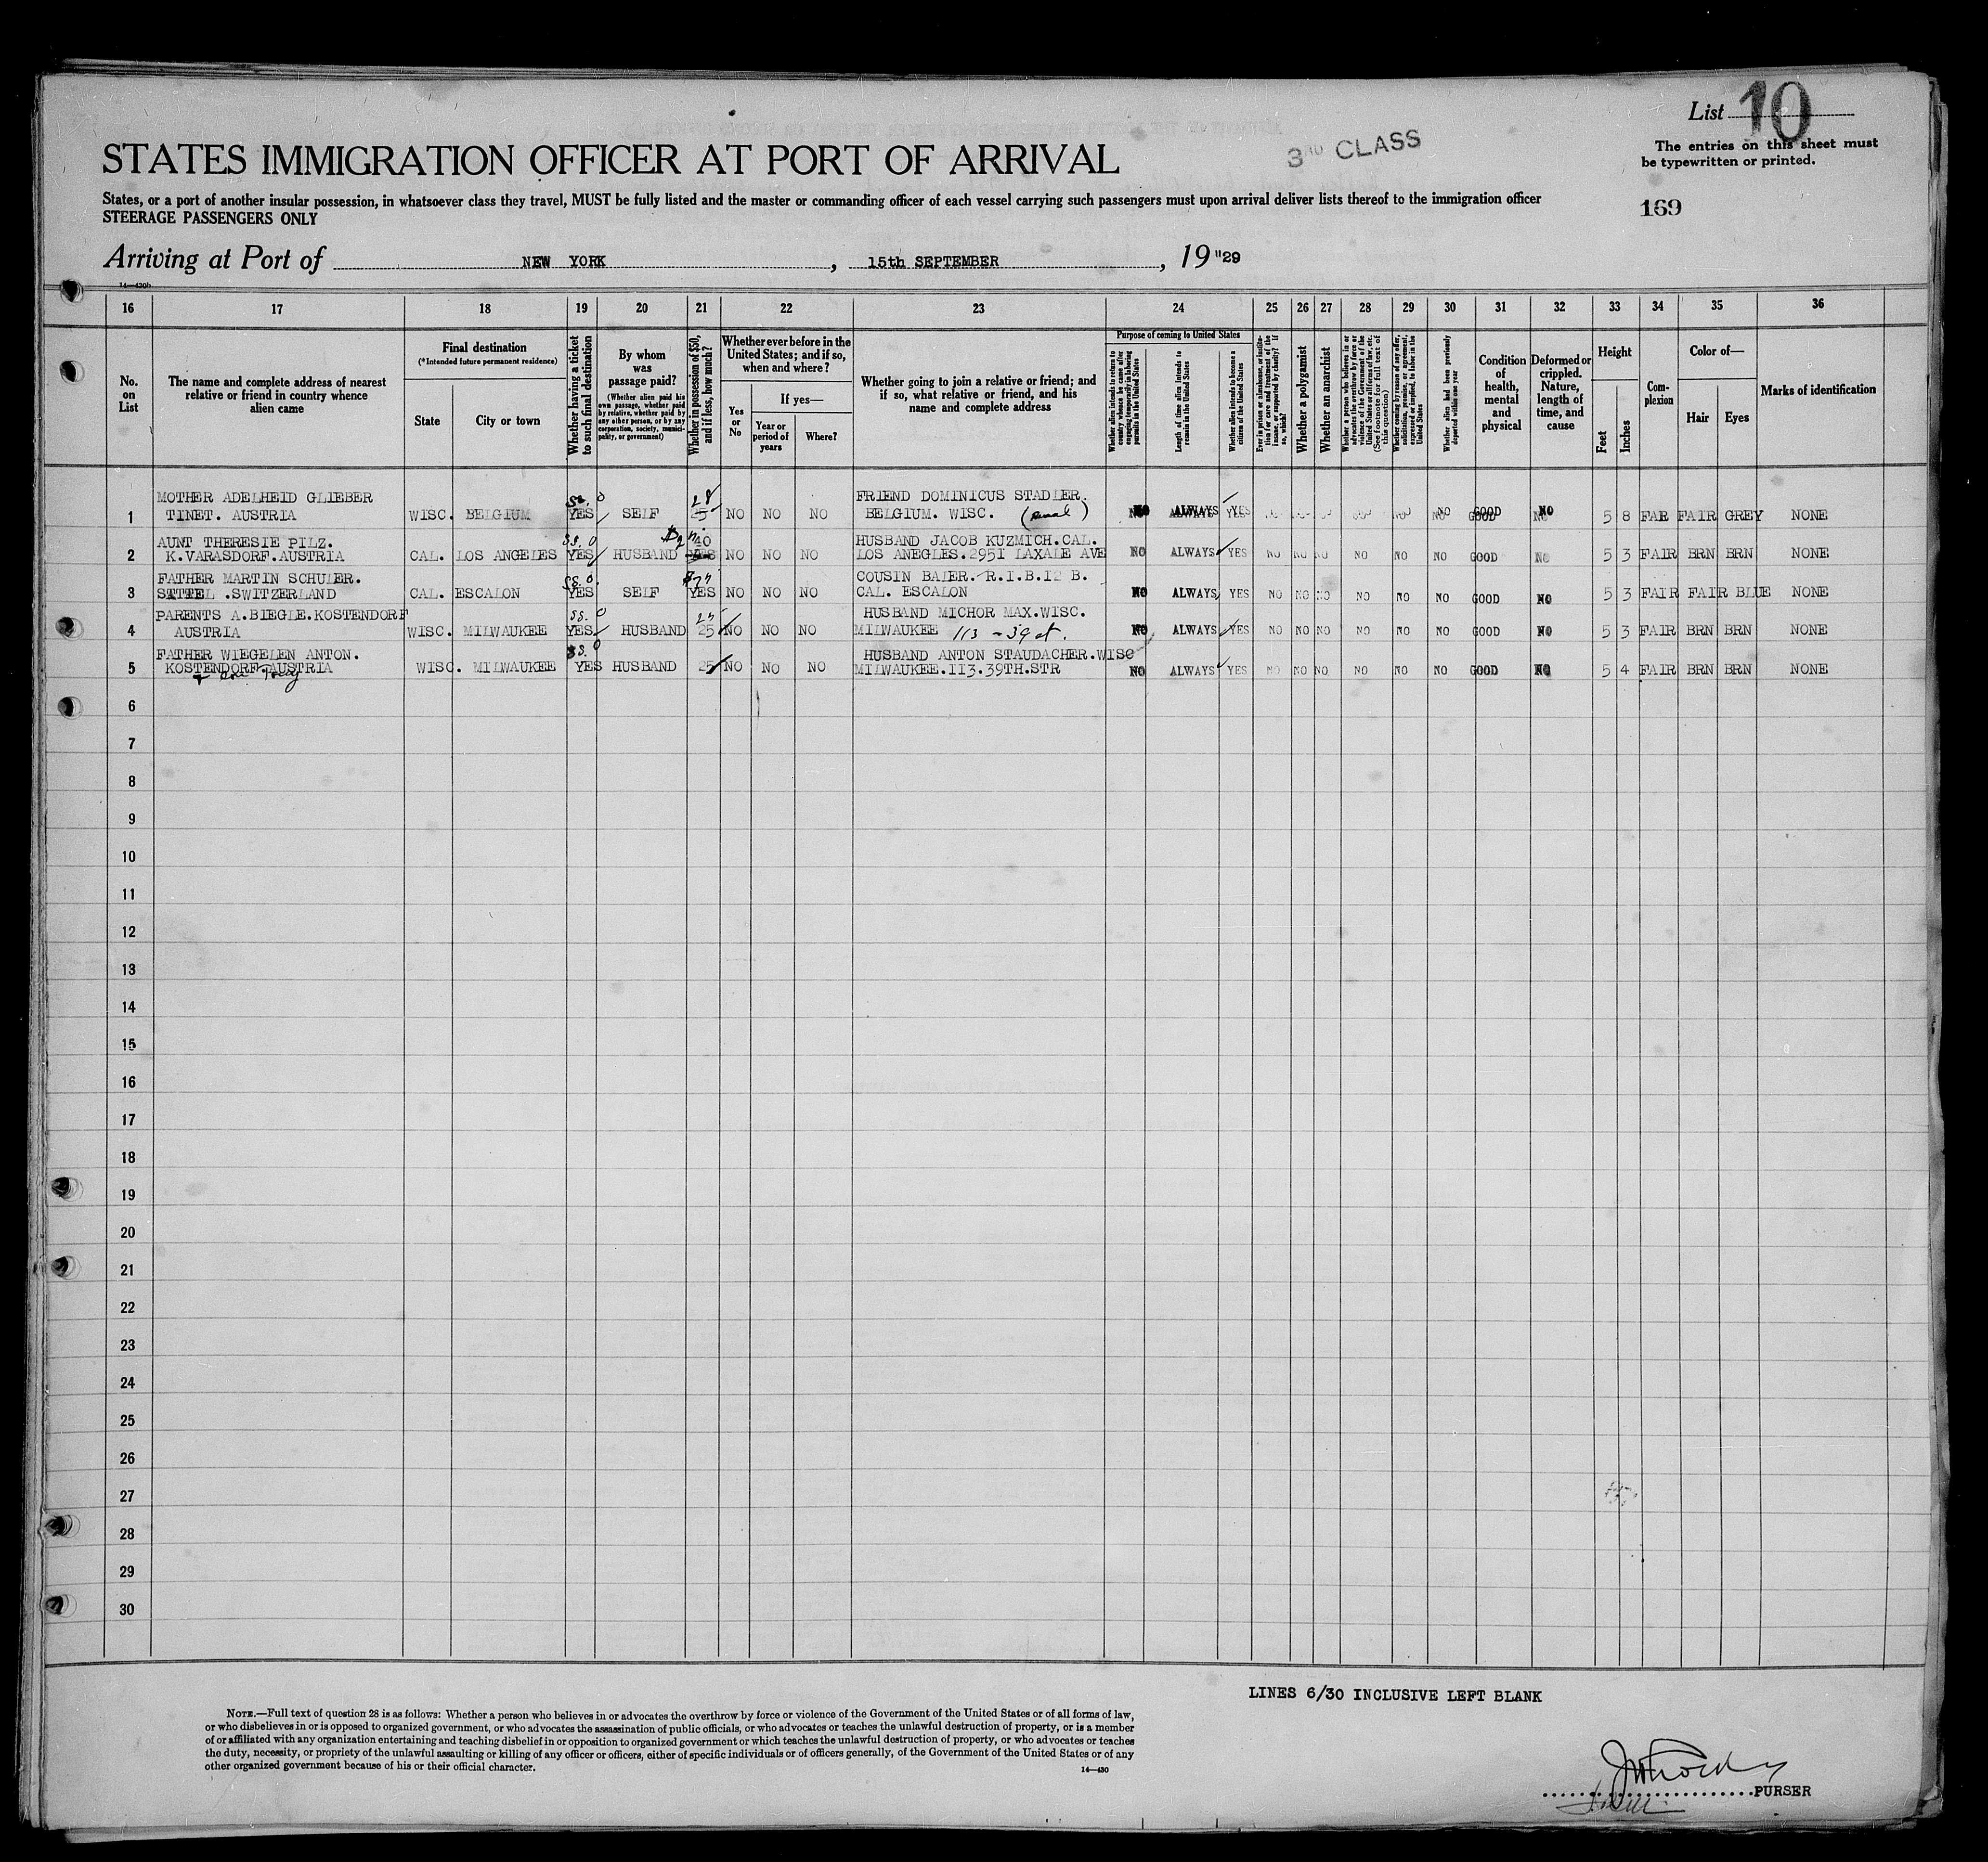 List 10
The entries on this sheet must
be typewritten or printed.
3RD CLASS
STATES IMMIGRATION OFFICER AT PORT OF ARRIVAL
169
States, or a port of another insular possession, in whatsoever class they travel, MUST be fully listed and the master or commanding officer of each vessel carrying such passengers must upon arrival deliver lists thereof to the immigration officer
STEERAGE PASSENGERS ONLY
Arriving at Port of NEW YORK, 15th SEPTEMBER, 19"29
14—430b
16 17 18 19 20 21 22 23 24 25 26 27 28 29 30 31 32 33 34 35 36
No. on List
The name and complete address of nearest relative or friend in country whence alien came
Final destination
(*Intended future permanent residence)
State
City or town
Whether having a ticket to such final destination
By whom was passage paid?
(Whether alien paid his own passage, whether paid by relative, whether paid by any other person, or by any corporation, society, municipality, or government)
Whether in possession of $50, and if less, how much?
Whether ever before in the United States; and if so, when and where?
Yes or No
If yes—
Year or period of years
Where?
Whether going to join a relative or friend; and if so, what relative or friend, and his name and complete address
Purpose of coming to United States
Whether alien intends to return to country whence he came after engaging temporarily in laboring pursuits in the United States
Length of time alien intends to remain in the United States
Whether alien intends to become a citizen of the United States
Ever in prison or almshouse, or institution for care and treatment of the insane, or supported by charity? If so, which?
Whether a polygamist
Whether an anarchist
Whether a person who believes in or advocates the overthrow by force or violence of the Government of the United States or all forms of law, etc. (See footnote for full text of this question)
Whether coming by reason of any offer, solicitation, promise, or agreement, expressed or implied, to labor in the United States
Whether alien had been previously deported within one year
Condition of health, mental and physical
Deformed or crippled. Nature, length of time, and cause
Height
Feet
Inches
Complexion
Color of—
Hair
Eyes
Marks of identification
MOTHER ADELHEID GLIEBER FRIEND DOMINICUS STADLER.
1 TINET. AUSTRIA WISC. BELGIUM YES SELF 28 NO NO NO BELGIUM. WISC. NO ALWAYS YES NO NO NO NO NO NO GOOD NO 5 8 FAR FAIR GREY NONE
AUNT THERESIE PILZ. HUSBAND JACOB KUZMICH.CAL.
2 K.VARASDORF.AUSTRIA CAL. LOS ANGELES YES HUSBAND YES NO NO NO LOS ANEGLES.295I LAXALE AVE NO ALWAYS YES NO NO NO NO NO NO GOOD NO 5 3 FAIR BRN BRN NONE
FATHER MARTIN SCHULER. COUSIN BAIER. R.I.B.I2 B.
3 SATTEL .SWITZERLAND CAL. ESCALON YES SELF YES NO NO NO CAL. ESCALON NO ALWAYS YES NO NO NO NO NO NO GOOD NO 5 3 FAIR FAIR BLUE NONE
PARENTS A.BIEGLE.KOSTENDORF HUSBAND MICHOR MAX.WISC.
4 AUSTRIA WISC. MILWAUKEE YES HUSBAND 25 NO NO NO MILWAUKEE 113 - 39 st. NO ALWAYS YES NO NO NO NO NO NO GOOD NO 5 3 FAIR BRN BRN NONE
FATHER WIEGELEN ANTON. HUSBAND ANTON STAUDACHER.WISC
5 KOSTENDORF AUSTRIA WISC. MILWAUKEE YES HUSBAND 25 NO NO NO MILWAUKEE.II3.39TH.STR NO ALWAYS YES NO NO NO NO NO NO GOOD NO 5 4 FAIR BRN BRN NONE
6
7
8
9
10
11
12
13
14
15
16
17
18
19
20
21
22
23
24
25
26
27
28
29
30
LINES 6/30 INCLUSIVE LEFT BLANK
NOTE.—Full text of question 28 is as follows: Whether a person who believes in or advocates the overthrow by force or violence of the Government of the United States or of all forms of law,
or who disbelieves in or is opposed to organized government, or who advocates the assassination of public officials, or who advocates or teaches the unlawful destruction of property, or is a member
of or affiliated with any organization entertaining and teaching disbelief in or opposition to organized government or which teaches the unlawful destruction of property, or who advocates or teaches
the duty, necessity, or propriety of the unlawful assaulting or killing of any officer or officers, either of specific individuals or of officers generally, of the Government of the United States or of any
other organized government because of his or their official character.
14—430
PURSER